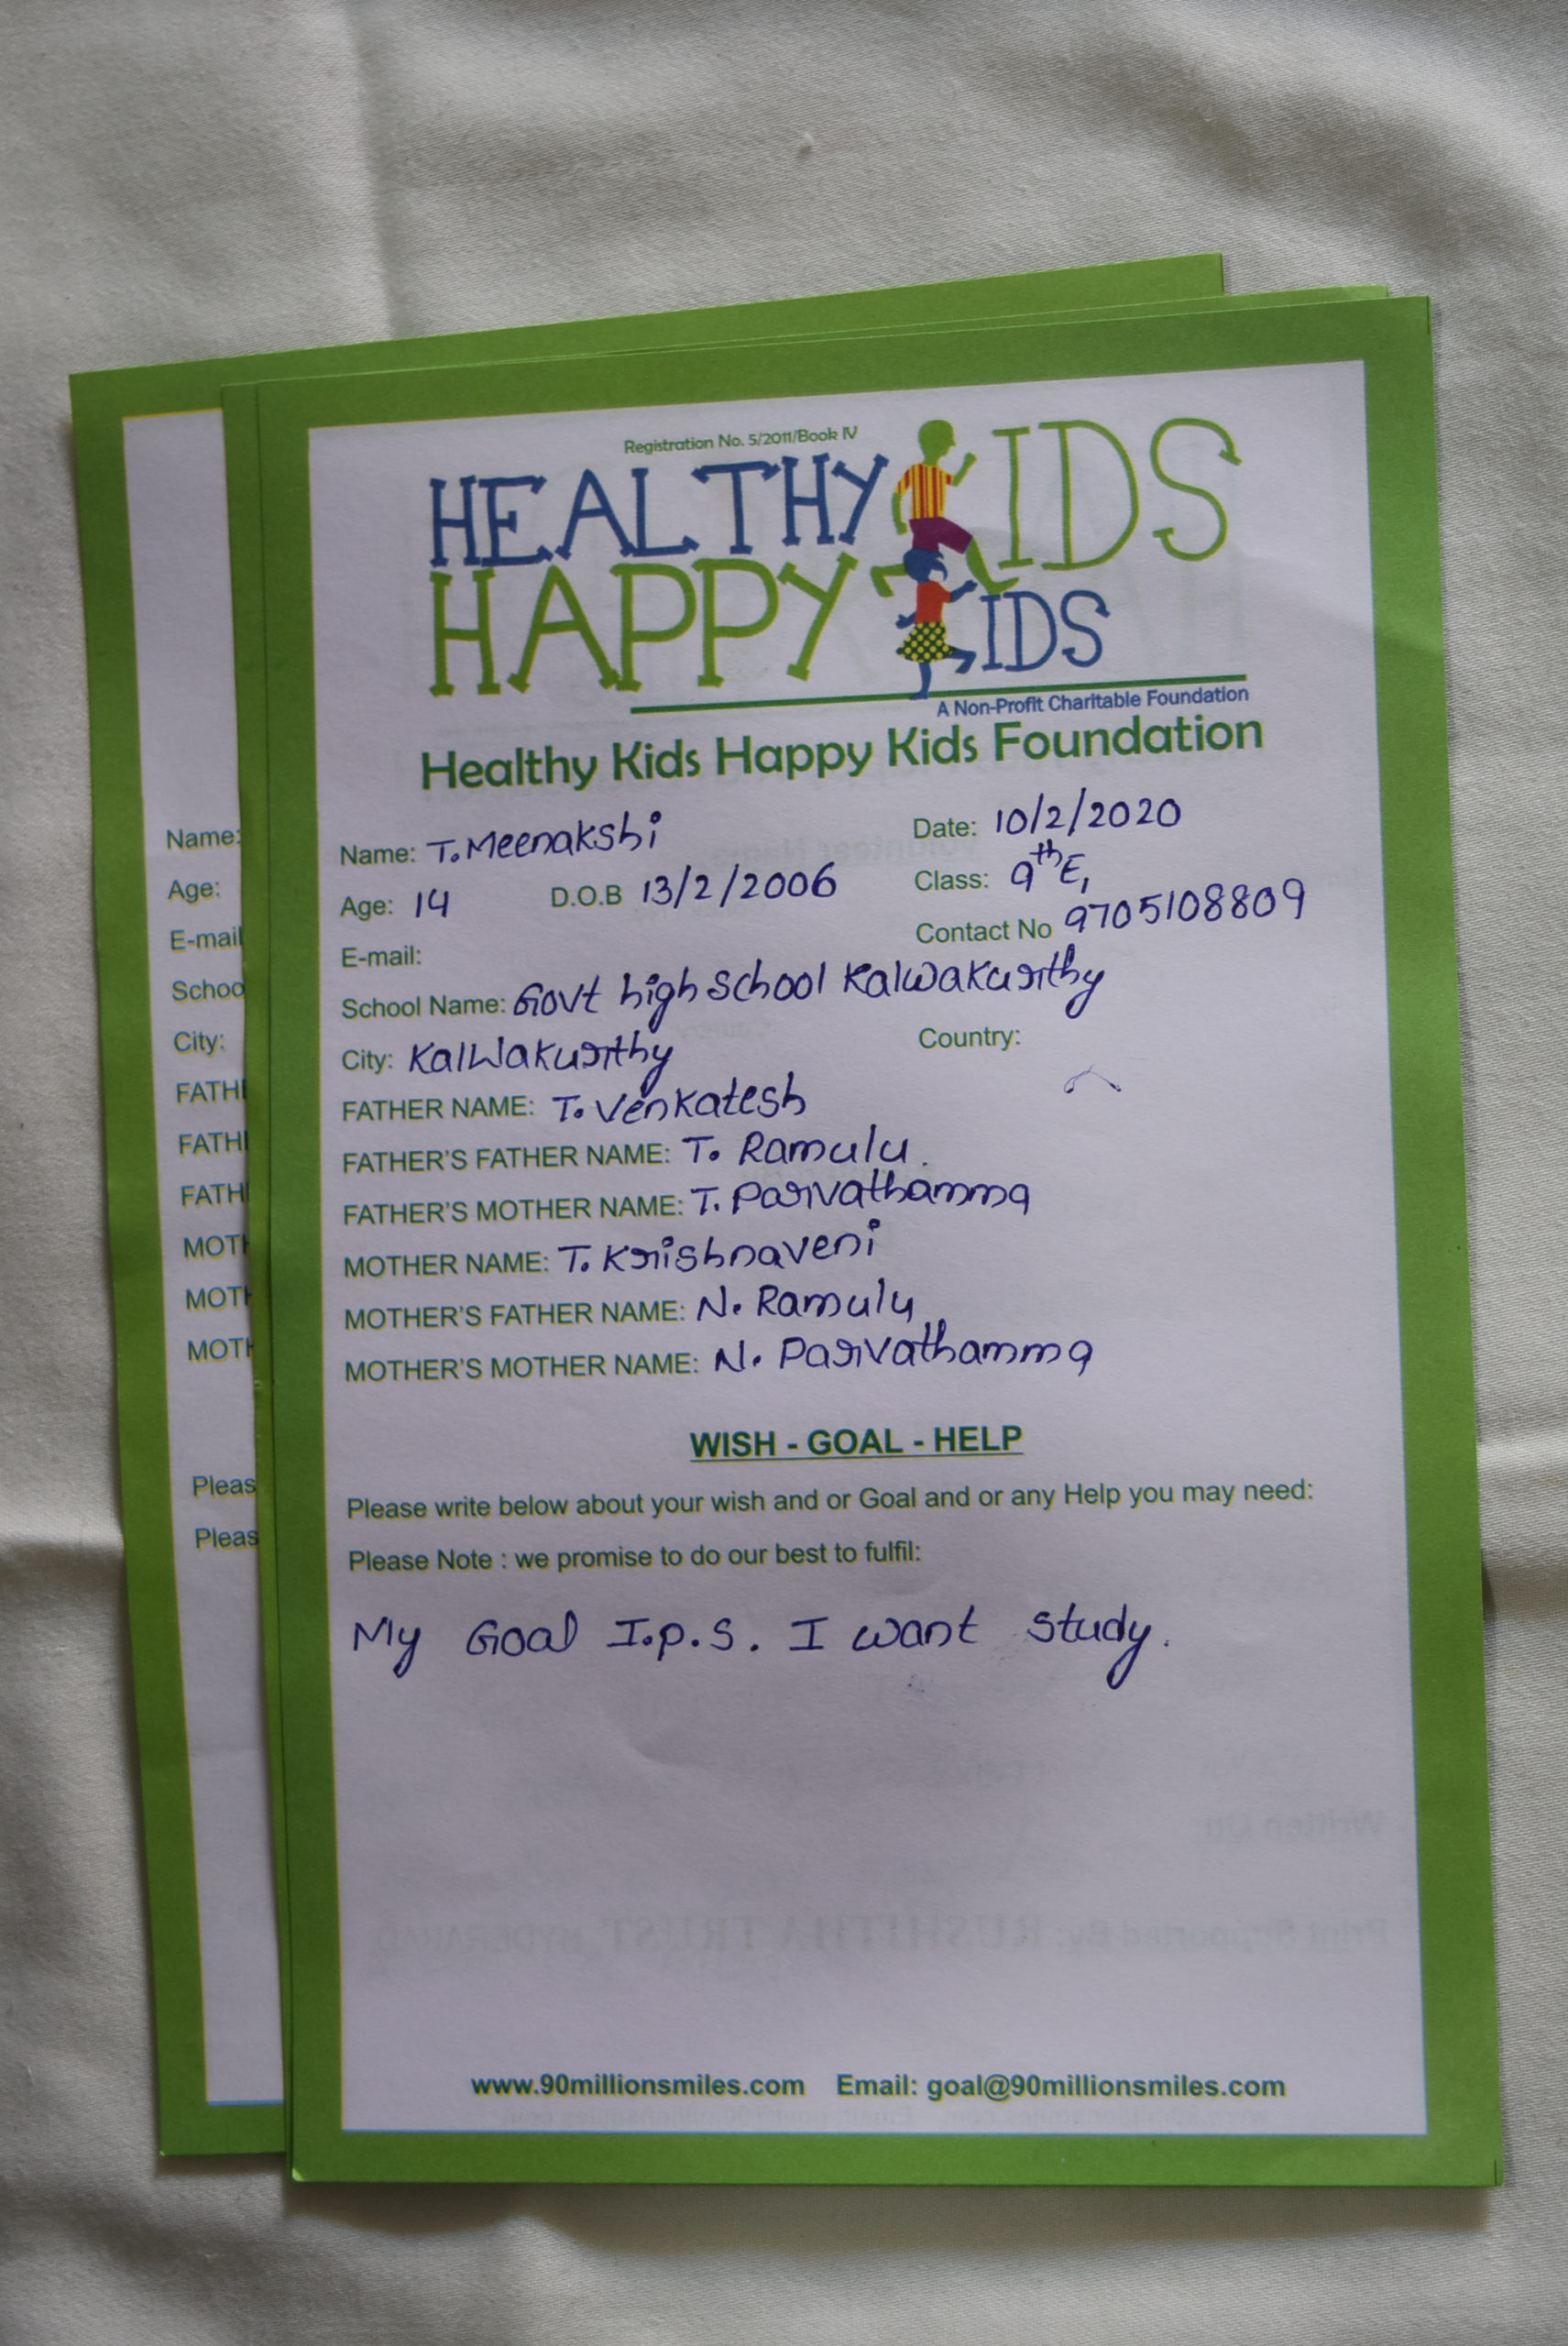 Registration No. 5/2011/Book IV
HEALTHY KIDS
HAPPY KIDS
A Non-Profit Charitable Foundation
Healthy Kids Happy Kids Foundation
Name: T. Meenakshi Date: 10/2/2020
Age: 14 D.O.B 13/2/2006 Class: 9th E,
E-mail: Contact No 9705108809
School Name: Govt high school Kalwakurthy
City: Kalwakurthy Country:
FATHER NAME: T. Venkatesh
FATHER'S FATHER NAME: T. Ramulu.
FATHER'S MOTHER NAME: T. Parvathamma
MOTHER NAME: T. Krishnaveni
MOTHER'S FATHER NAME: N. Ramulu
MOTHER'S MOTHER NAME: N. Parvathamma
WISH - GOAL - HELP
Please write below about your wish and or Goal and or any Help you may need:
Please Note : we promise to do our best to fulfil:
My Goal I.p.s. I want study.
www.90millionsmiles.com Email: goal@90millionsmiles.com
Name:
Age:
E-mail
Schoo
City:
FATH
FATH
FATH
MOTH
MOTH
MOTH
Pleas
Pleas